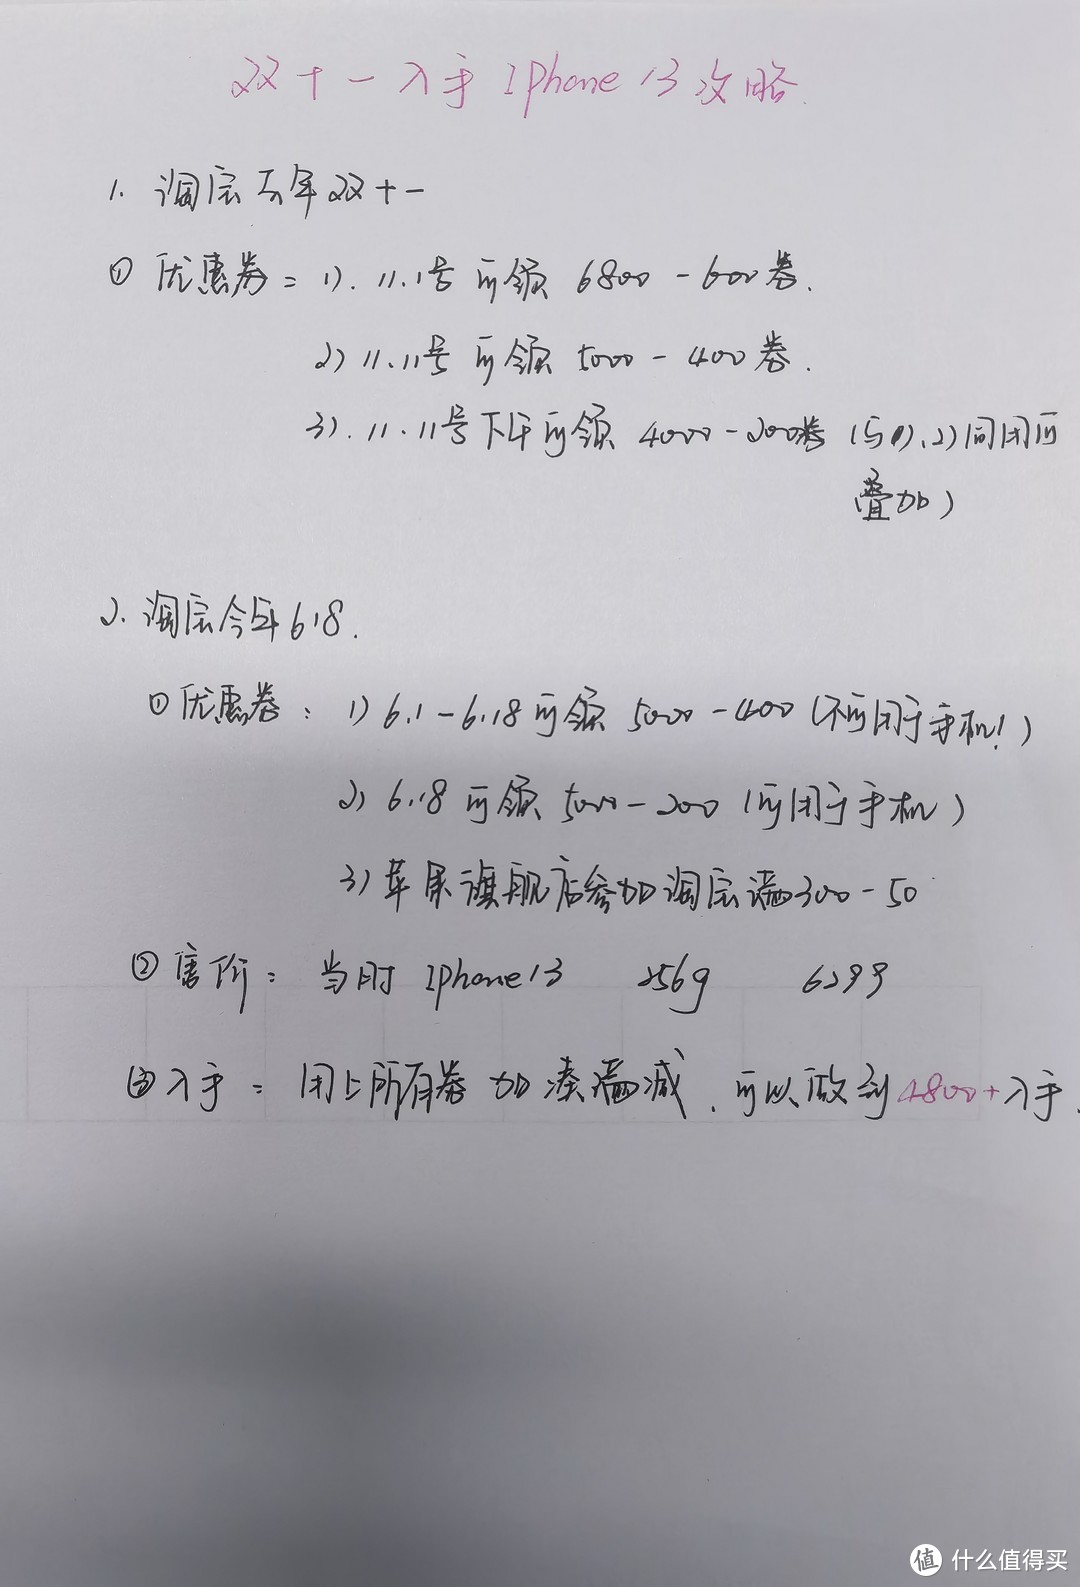 双十一入手Iphone13攻略.
1. 淘宝去年双十一
① 优惠券: 1). 11.1号可领 6800-600券.
2) 11.11号可领 5000-400券.
3). 11.11号下午可领 4000-200券 (与1)、2)同用可
叠加)
2. 淘宝今年618.
①优惠券: 1) 6.1-6.18可领 5000-400 (不可用于手机!)
2) 6.18可领 5000-200 (可用于手机)
3) 苹果旗舰店参加淘宝满300-50
②售价: 当时 Iphone13 256g 6299
③入手: 用上所有券加凑满减, 可以做到4800+入手.
值 什么值得买